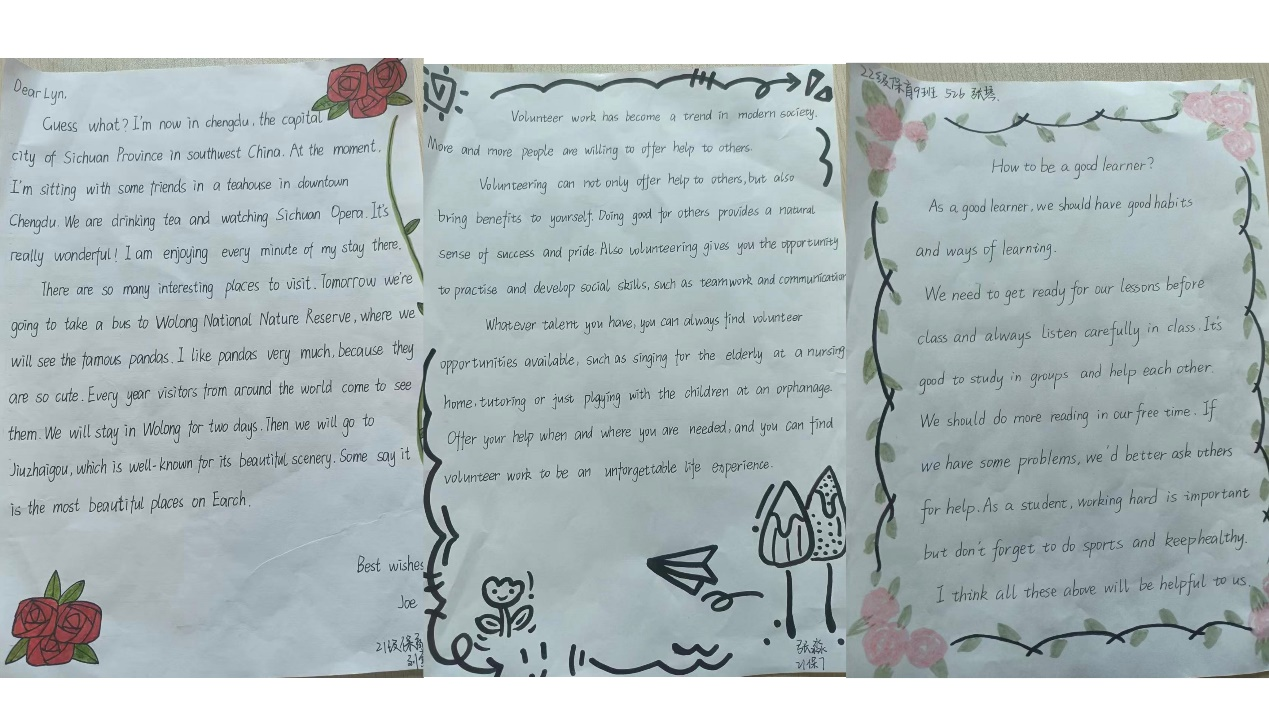 Dear Lyn.
Guess what? I'm now in chengdu, the capital
city of Sichuan Province in southwest China. At the moment,
I'm sitting with some friends in a teahouse in downtown
Chengdu. We are drinking tea and watching Sichuan Opera. It's
really wonderful! I am enjoying every minute of my stay there.
There are so many interesting places to visit. Tomorrow we're
going to take a bus to Wolong National Nature Reserve, where we
will see the famous pandas. I like pandas very much, because they
are so cute. Every year visitors from around the world come to see
them. We will stay in Wolong for two days. Then we will go to
Jiuzhaigou, which is well-known for its beautiful scenery. Some say it
is the most beautiful places on Earch.
Best wishes
Joe
21级保育
Volunteer work has become a trend in modern society.
More and more people are willing to offer help to others.
Volunteering can not only offer help to others, but also
bring benefits to yourself. Doing good for others provides a natural
sense of success and pride. Also volunteering gives you the opportunity
to practise and develop social skills, such as teamwork and communication
Whatever talent you have, you can always find volunteer
opportunities available, such as singing for the elderly at a nursing
home, tutoring or just plqying with the children at an orphanage.
Offer your help when and where you are needed, and you can find
volunteer work to be an unforgettable life experience.
张淼
21保7
22级保育9班 526 张琴.
How to be a good learner?
As a good learner, we should have good habits
and ways of learning.
We need to get ready for our lessons before
class and always listen carefully in class. It's
good to study in groups and help each other.
We should do more reading in our free time. If
we have some problems, we'd better ask others
for help. As a student, working hard is important
but don't forget to do sports and keephealthy.
I think all these above will be helpful to us.